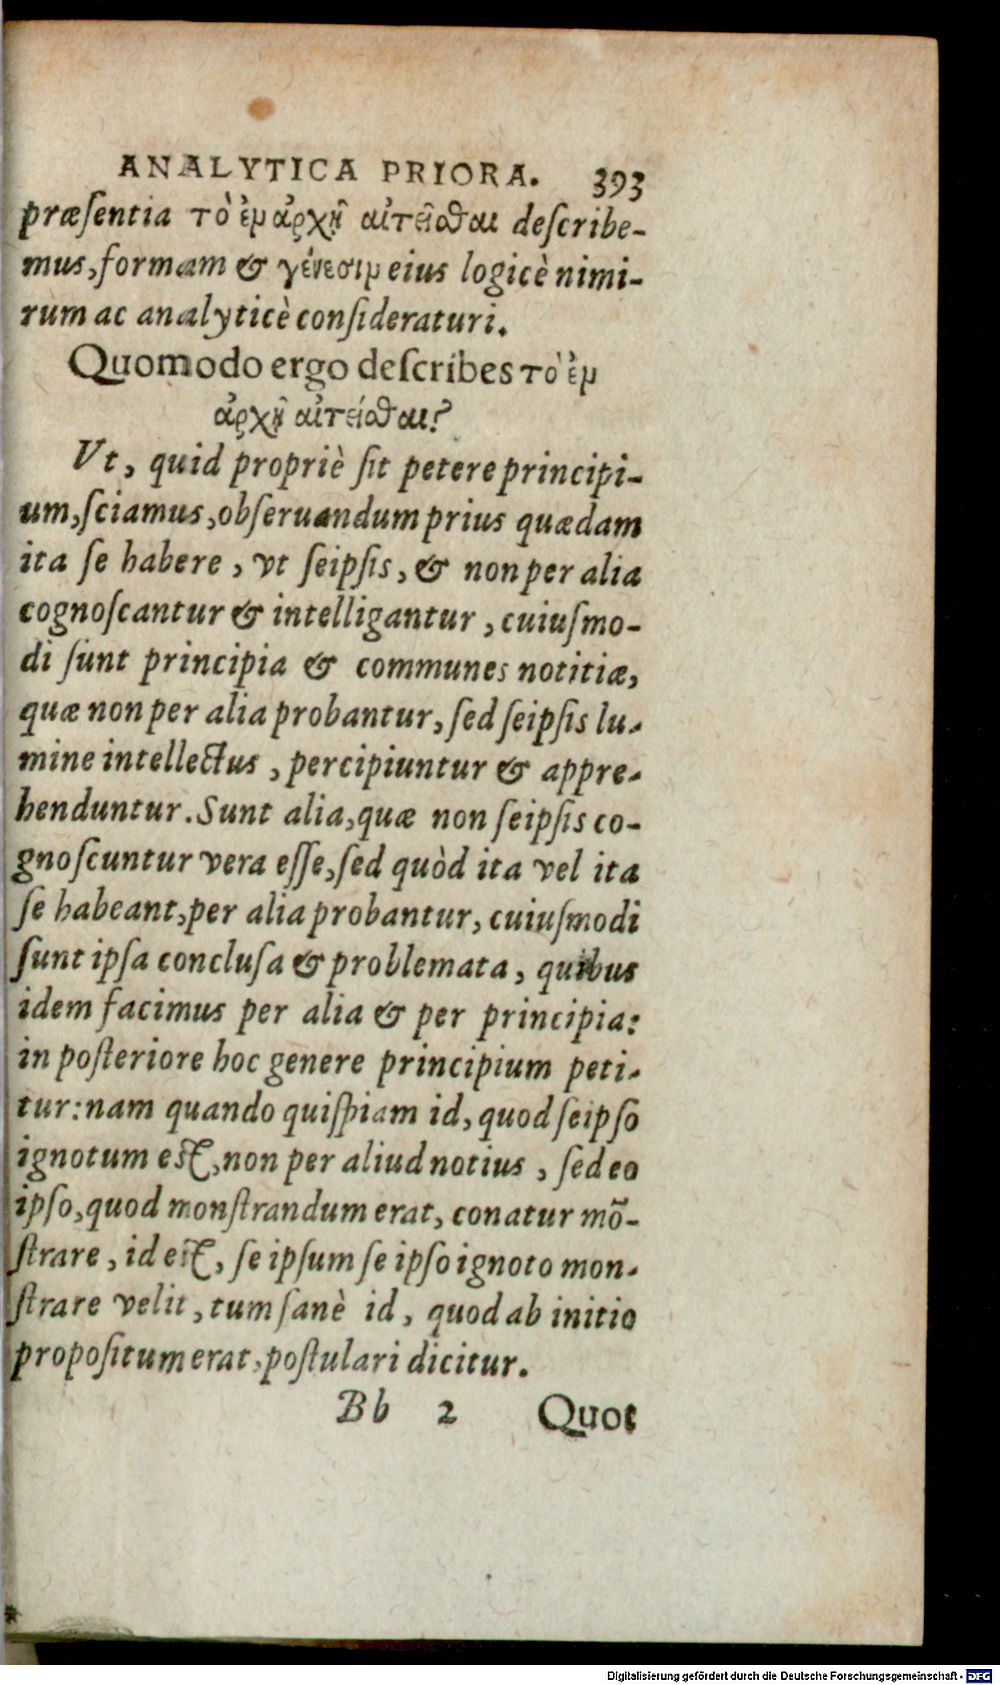 ANALYTICA PRIORA. 393
præſentia τὸ ἐμ ἀρχῇ αἰτεῖσθαι deſcribe-
mus, formam & γένεσιμ eius logicè nimi-
rum ac analyticè conſideraturi.
Quomodo ergo deſcribes τὸ ἐμ
ἀρχῇ αἰτεῖσθαι?
Vt, quid propriè ſit petere principi-
um, ſciamus, obſeruandum prius quædam
ita ſe habere, vt ſeipſis, & non per alia
cognoſcantur & intelligantur, cuiuſmo-
di ſunt principia & communes notitiæ,
quæ non per alia probantur, ſed ſeipſis lu-
mine intellectus, percipiuntur & appre-
henduntur. Sunt alia, quæ non ſeipſis co-
gnoſcuntur vera eſſe, ſed quòd ita vel ita
ſe habeant, per alia probantur, cuiuſmodi
ſunt ipſa concluſa & problemata, quibus
idem facimus per alia & per principia:
in poſteriore hoc genere principium peti-
tur: nam quando quiſpiam id, quod ſeipſo
ignotum eſt, non per aliud notius, ſed eo
ipſo, quod monſtrandum erat, conatur mõ-
ſtrare, id eſt, ſe ipſum ſe ipſo ignoto mon-
ſtrare velit, tum ſanè id, quod ab initio
propoſitum erat, poſtulari dicitur.
Bb 2 Quot
Digitalisierung gefördert durch die Deutsche Forschungsgemeinschaft - DFG